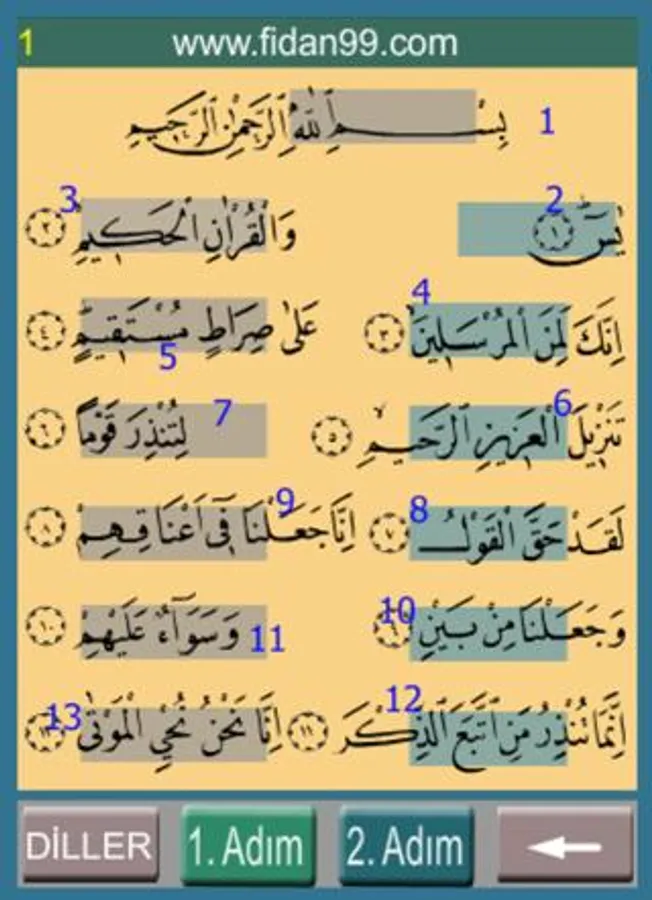 1 www.fidan99.com
بِسْمِ اللهِ الرَّحْمٰنِ الرَّحِيمِ 1
2 يٰسٓ ۚ ﴿١﴾ 3 وَالْقُرْاٰنِ الْحَكِيمِ ﴿٢﴾
4 اِنَّكَ لَمِنَ الْمُرْسَلِينَ ﴿٣﴾ عَلٰى صِرَاطٍ مُسْتَقِيمٍ ﴿٤﴾ 5
6 تَنْزِيلَ الْعَزِيزِ الرَّحِيمِ ﴿٥﴾ 7 لِتُنْذِرَ قَوْمًا ﴿٦﴾
8 لَقَدْ حَقَّ الْقَوْلُ ﴿٧﴾ 9 اِنَّا جَعَلْنَا فِٓى اَعْنَاقِهِمْ ﴿٨﴾
10 وَجَعَلْنَا مِنْ بَيْنِ ﴿٩﴾ وَسَوَٓاءٌ عَلَيْهِمْ ﴿١٠﴾ 11
12 اِنَّمَا تُنْذِرُ مَنِ اتَّبَعَ الذِّكْرَ ﴿١١﴾ 13 اِنَّا نَحْنُ نُحْيِ الْمَوْتٰى ﴿١٢﴾
DİLLER 1. Adım 2. Adım